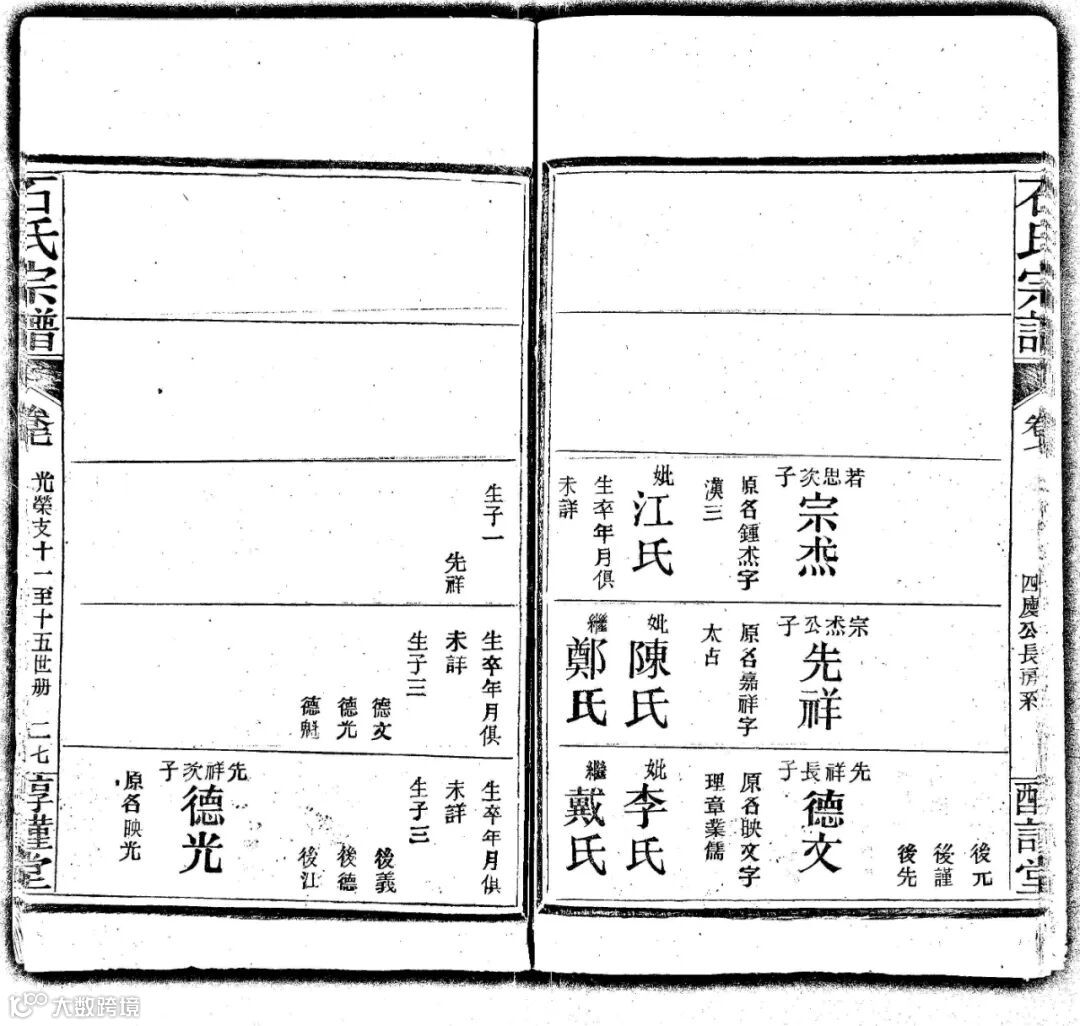 石氏宗譜
卷
四慶公長房系
醇謹堂
若思次子
宗杰
原名鍾杰字
漢三
妣
江氏
生卒年月俱
未詳
宗杰公子
先祥
原名嘉祥字
太占
妣
陳氏
繼
鄭氏
後元
後謹
後先
先祥長子
德文
原名映文字
理章業儒
妣
李氏
繼
戴氏
生子一
先祥
生卒年月俱
未詳
生子三
德文
德光
德魁
生卒年月俱
未詳
生子三
後義
後德
後江
先祥次子
德光
原名映光
石氏宗譜
卷
光榮支十一至十五世册
二七
醇謹堂
大数跨境